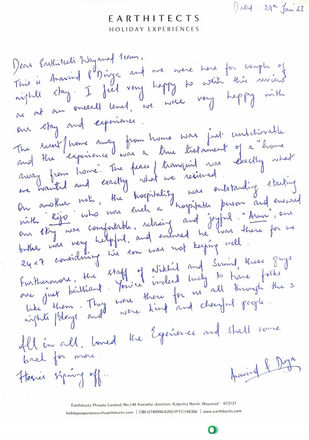 EARTHITECTS
HOLIDAY EXPERIENCES
Dated: 29th Jan 23
Dear Earthitects Wayanad team,
This is Aravind & Divya and we were here for couple of
nights stay. I feel very happy to write this review
as at an overall level, we were very happy with
our stay and experience.
The resort/home away from home was just unbelievable
and the "experience" was a true testament of a "home
away from home". The peace/tranquil was exactly what
we wanted and exactly what we received.
On another note, the hospitality was outstanding starting
with who was such a hospitable person and ensured
our stay was comfortable, relaxing and joyful. our
butler was very helpful, and ensured he was there for us
24x7 considering his son was not keeping well.
Furthermore, the staff of Nikhil and these guys
are just brilliant. You're indeed lucky to have folks
like them. They were there for us all through the 2
nights and were kind and cheerful people.
All in all, loved the Experience and shall come
back for more.
signing off.
Aravind & Divya
Earthitects Private Limited,
holidayexperiences@earthitects.com | www.earthitects.com